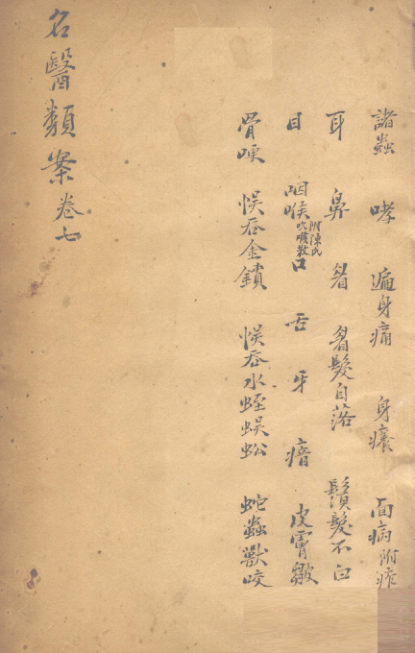 諸蟲 哮 遍身痛 身癢 面病附痄
耳 鼻 眉 眉髮自落 鬚髮不白
目 咽喉附陳氏吹喉散 口 舌 牙 瘖 皮膚皺
骨哽 悮吞金鐀 悮吞水蛭蜈蚣 蛇蟲獸咬
名醫類案卷七